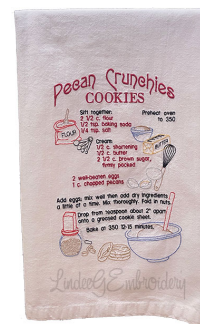 Pecan Crunchies
COOKIES
Sift together:
Preheat oven
to 350
2 1/2 c. flour
1/2 tsp. baking soda
1/4 tsp. salt
FLOUR
Cream:
1/2 c. shortening
1/2 c. butter
2 1/2 c. brown sugar,
firmly packed
BUTTER
2 well-beaten eggs
1 c. chopped pecans
Add eggs; mix well then add dry ingredients
a little at a time. Mix thoroughly. Fold in nuts.
Drop from teaspoon about 2" apart
onto a greased cookie sheet.
Bake at 350 12-15 minutes.
LindeeG Embroidery